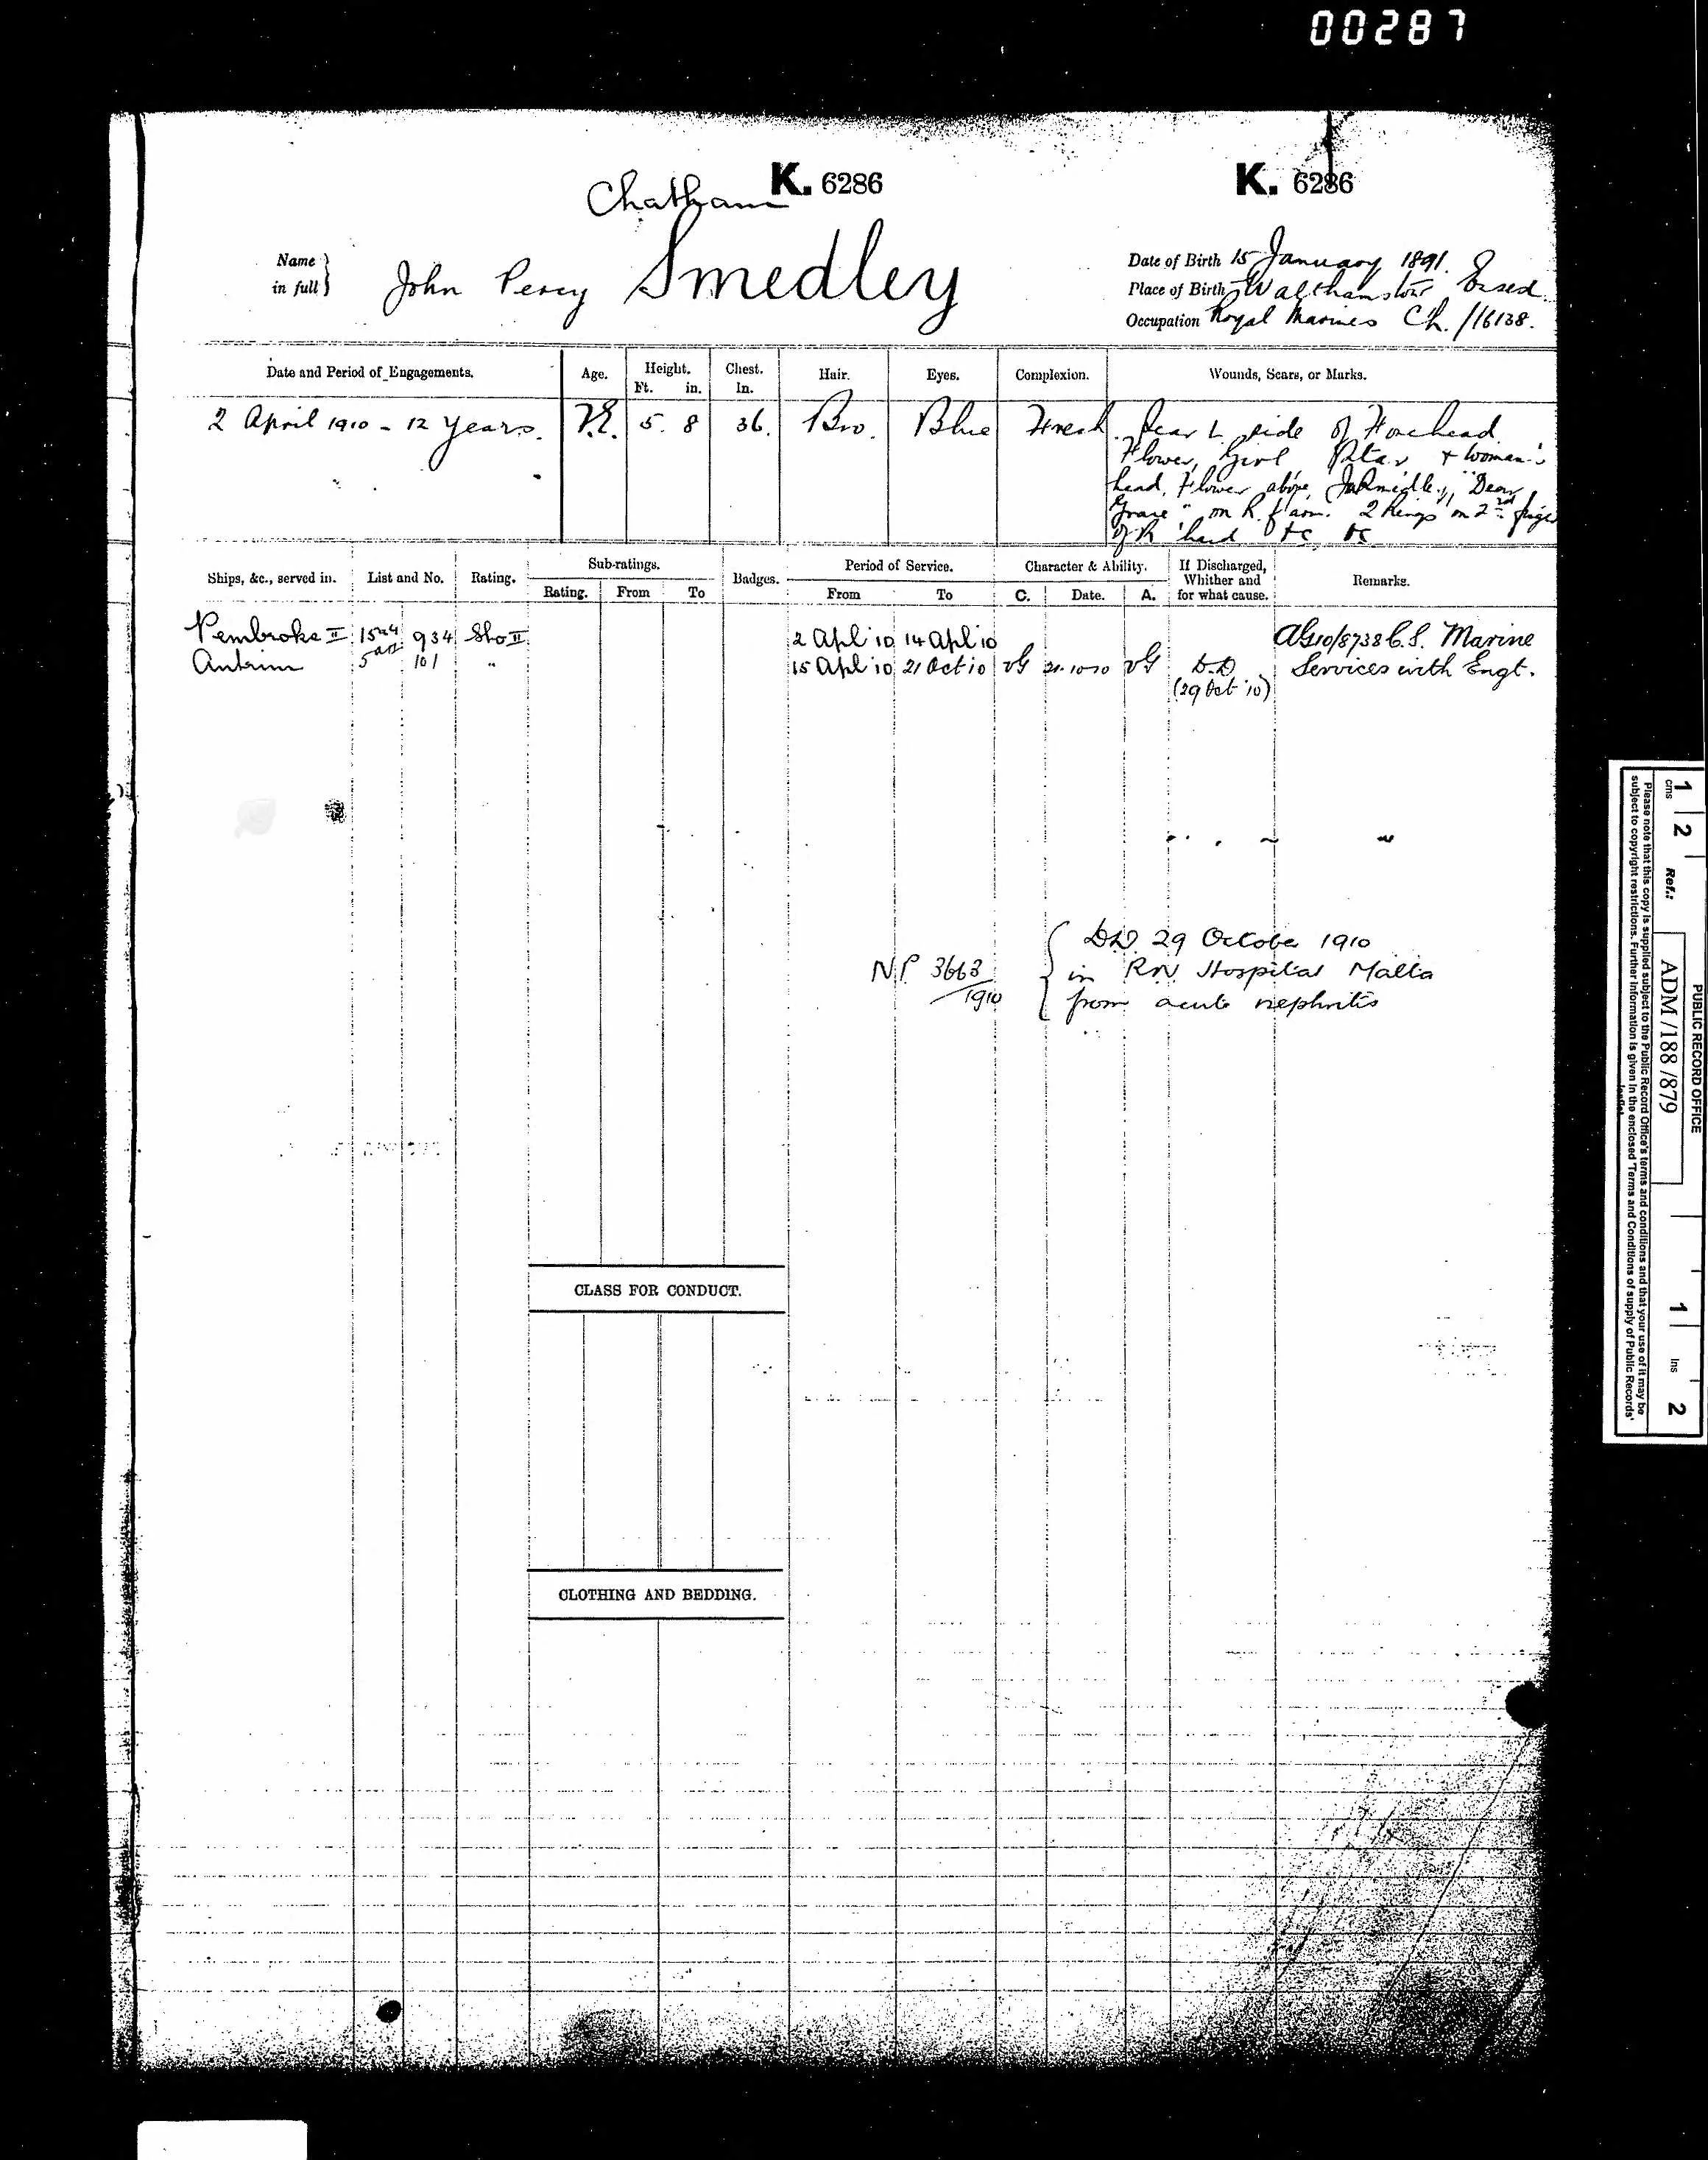 00287
K. 6286
K. 6286
Chatham
Name in full } John Percy Smedley
Date of Birth 15 January 1891.
Place of Birth Walthamstow Essex
Occupation Royal Marines Ch./16138.
Date and Period of Engagements. Age. Height. Ft. in. Chest. In. Hair. Eyes. Complexion. Wounds, Scars, or Marks.
2 April 1910 - 12 Years. 5. 8 36. Bro. Blue Fresh. Scar L side of Forehead
Flower, Girl Star & Woman's
head, Flower above, "Dear
Grace" on R. f'arm. 2 Rings on 2nd finger
of R hand &c, &c
Ships, &c., served in. List and No. Rating. Sub-ratings. Rating. From To Badges. Period of Service. From To Character & Ability. C. Date. A. If Discharged, Whither and for what cause. Remarks.
Pembroke II 15a4 934 Sto II 2 Apl 10 14 Apl 10 C.S. Marine
Antrim 5 101 " 15 Apl 10 21 Oct 10 VG 21.10.10 VG D.D. Services with Engt.
(29 Oct 10)
DD. 29 October 1910
N.P. 3663/1910 { in RN Hospital Malta
from acute nephritis
CLASS FOR CONDUCT.
CLOTHING AND BEDDING.
1 2 1 2
cms Ref.: ins
PUBLIC RECORD OFFICE
ADM/188/879
Please note that this copy is supplied subject to the Public Record Office's terms and conditions and that your use of it may be
subject to copyright restrictions. Further information is given in the enclosed 'Terms and Conditions of supply of Public Records'
leaflet